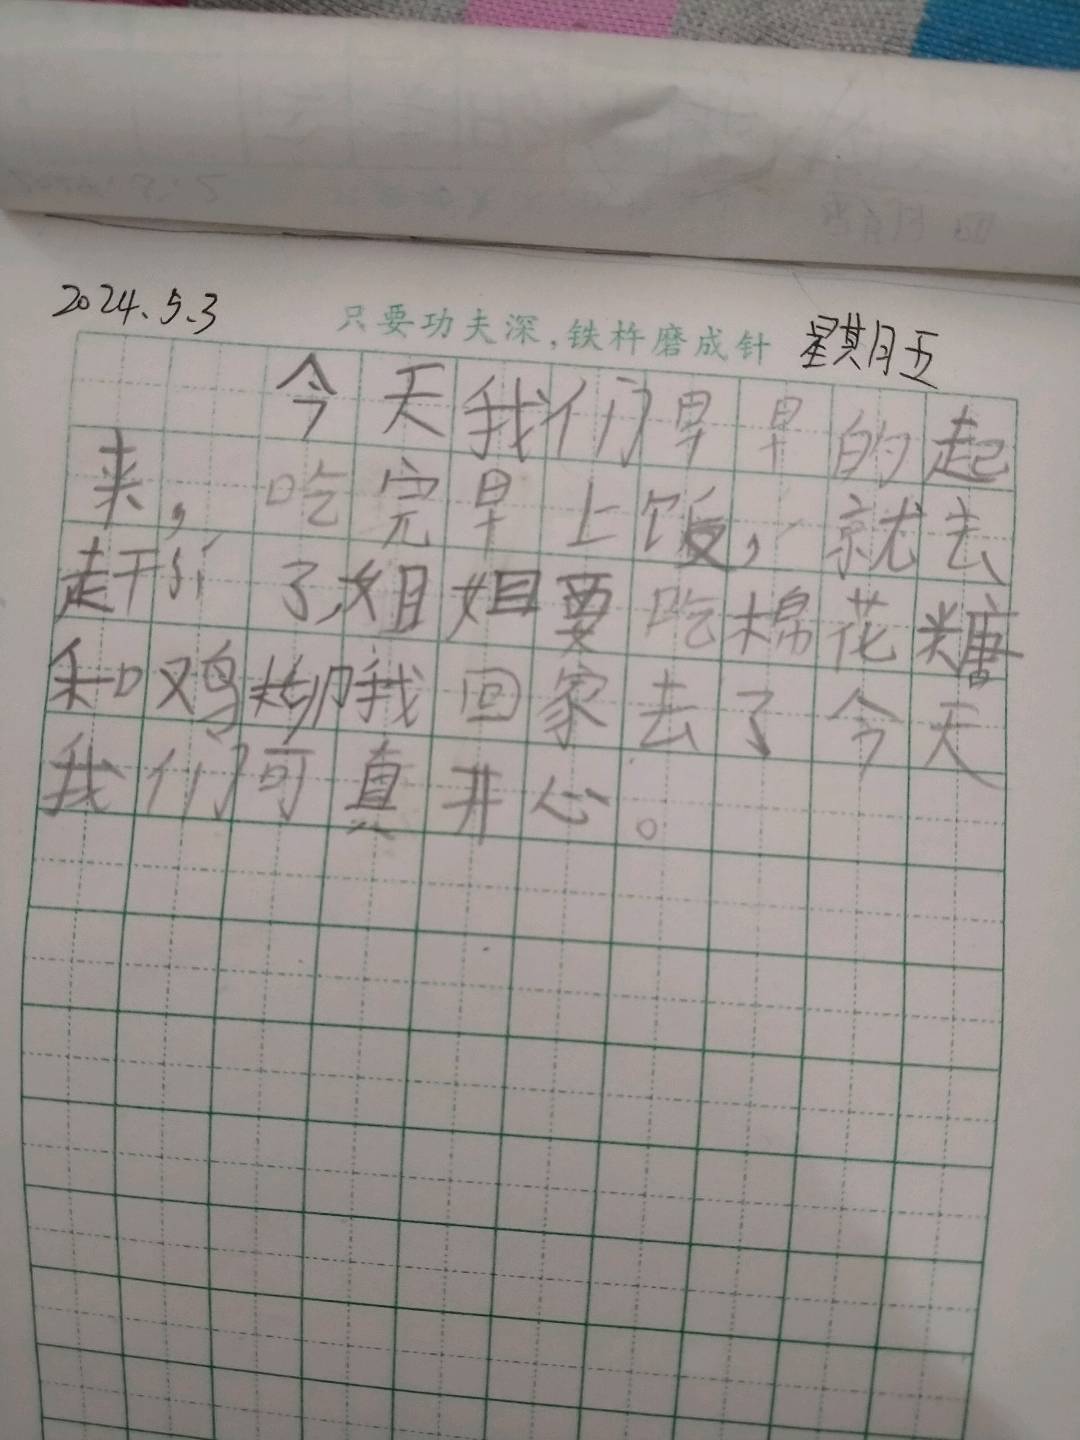 2024.5.3 只要功夫深,铁杵磨成针 星其月五
今天我们早早的起
来,吃完早上饭,就去
赶了,姐姐要吃棉花糖
和鸡柳我回家去了今天
我们可真开心。